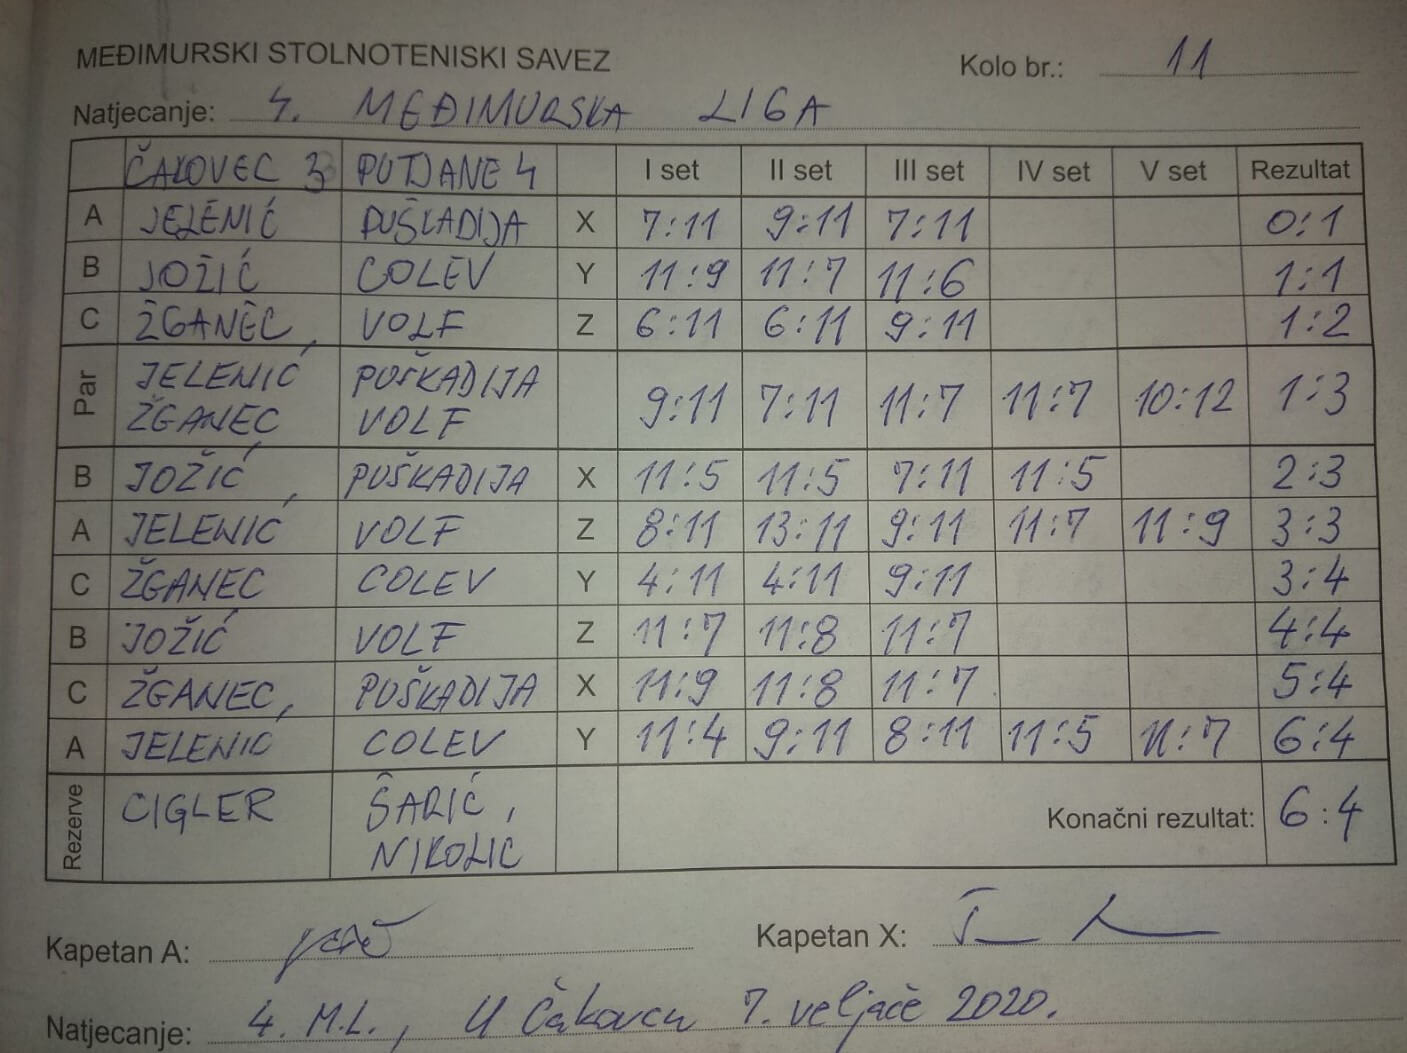 MEĐIMURSKI STOLNOTENISKI SAVEZ Kolo br.: 11
Natjecanje: 4. MEĐIMURSKA LIGA
ČAKOVEC 3 PUTJANE 4 I set II set III set IV set V set Rezultat
A JELENIĆ PUŠKADIJA X 7:11 9:11 7:11 0:1
B JOŽIĆ COLEV Y 11:9 11:7 11:6 1:1
C ŽGANEC, VOLF Z 6:11 6:11 9:11 1:2
Par JELENIĆ PUŠKADIJA 9:11 7:11 11:7 11:7 10:12 1:3
ŽGANEC VOLF
B JOŽIĆ, PUŠKADIJA X 11:5 11:5 7:11 11:5 2:3
A JELENIĆ VOLF Z 8:11 13:11 9:11 11:7 11:9 3:3
C ŽGANEC COLEV Y 4:11 4:11 9:11 3:4
B JOŽIĆ VOLF Z 11:7 11:8 11:7 4:4
C ŽGANEC, PUŠKADIJA X 11:9 11:8 11:7 5:4
A JELENIC COLEV Y 11:4 9:11 8:11 11:5 11:7 6:4
Rezerve CIGLER ŠARIĆ, Konačni rezultat: 6:4
NIKOLIC
Kapetan A: Kapetan X:
Natjecanje: 4. M.L., U Čakovcu 7. veljače 2020.